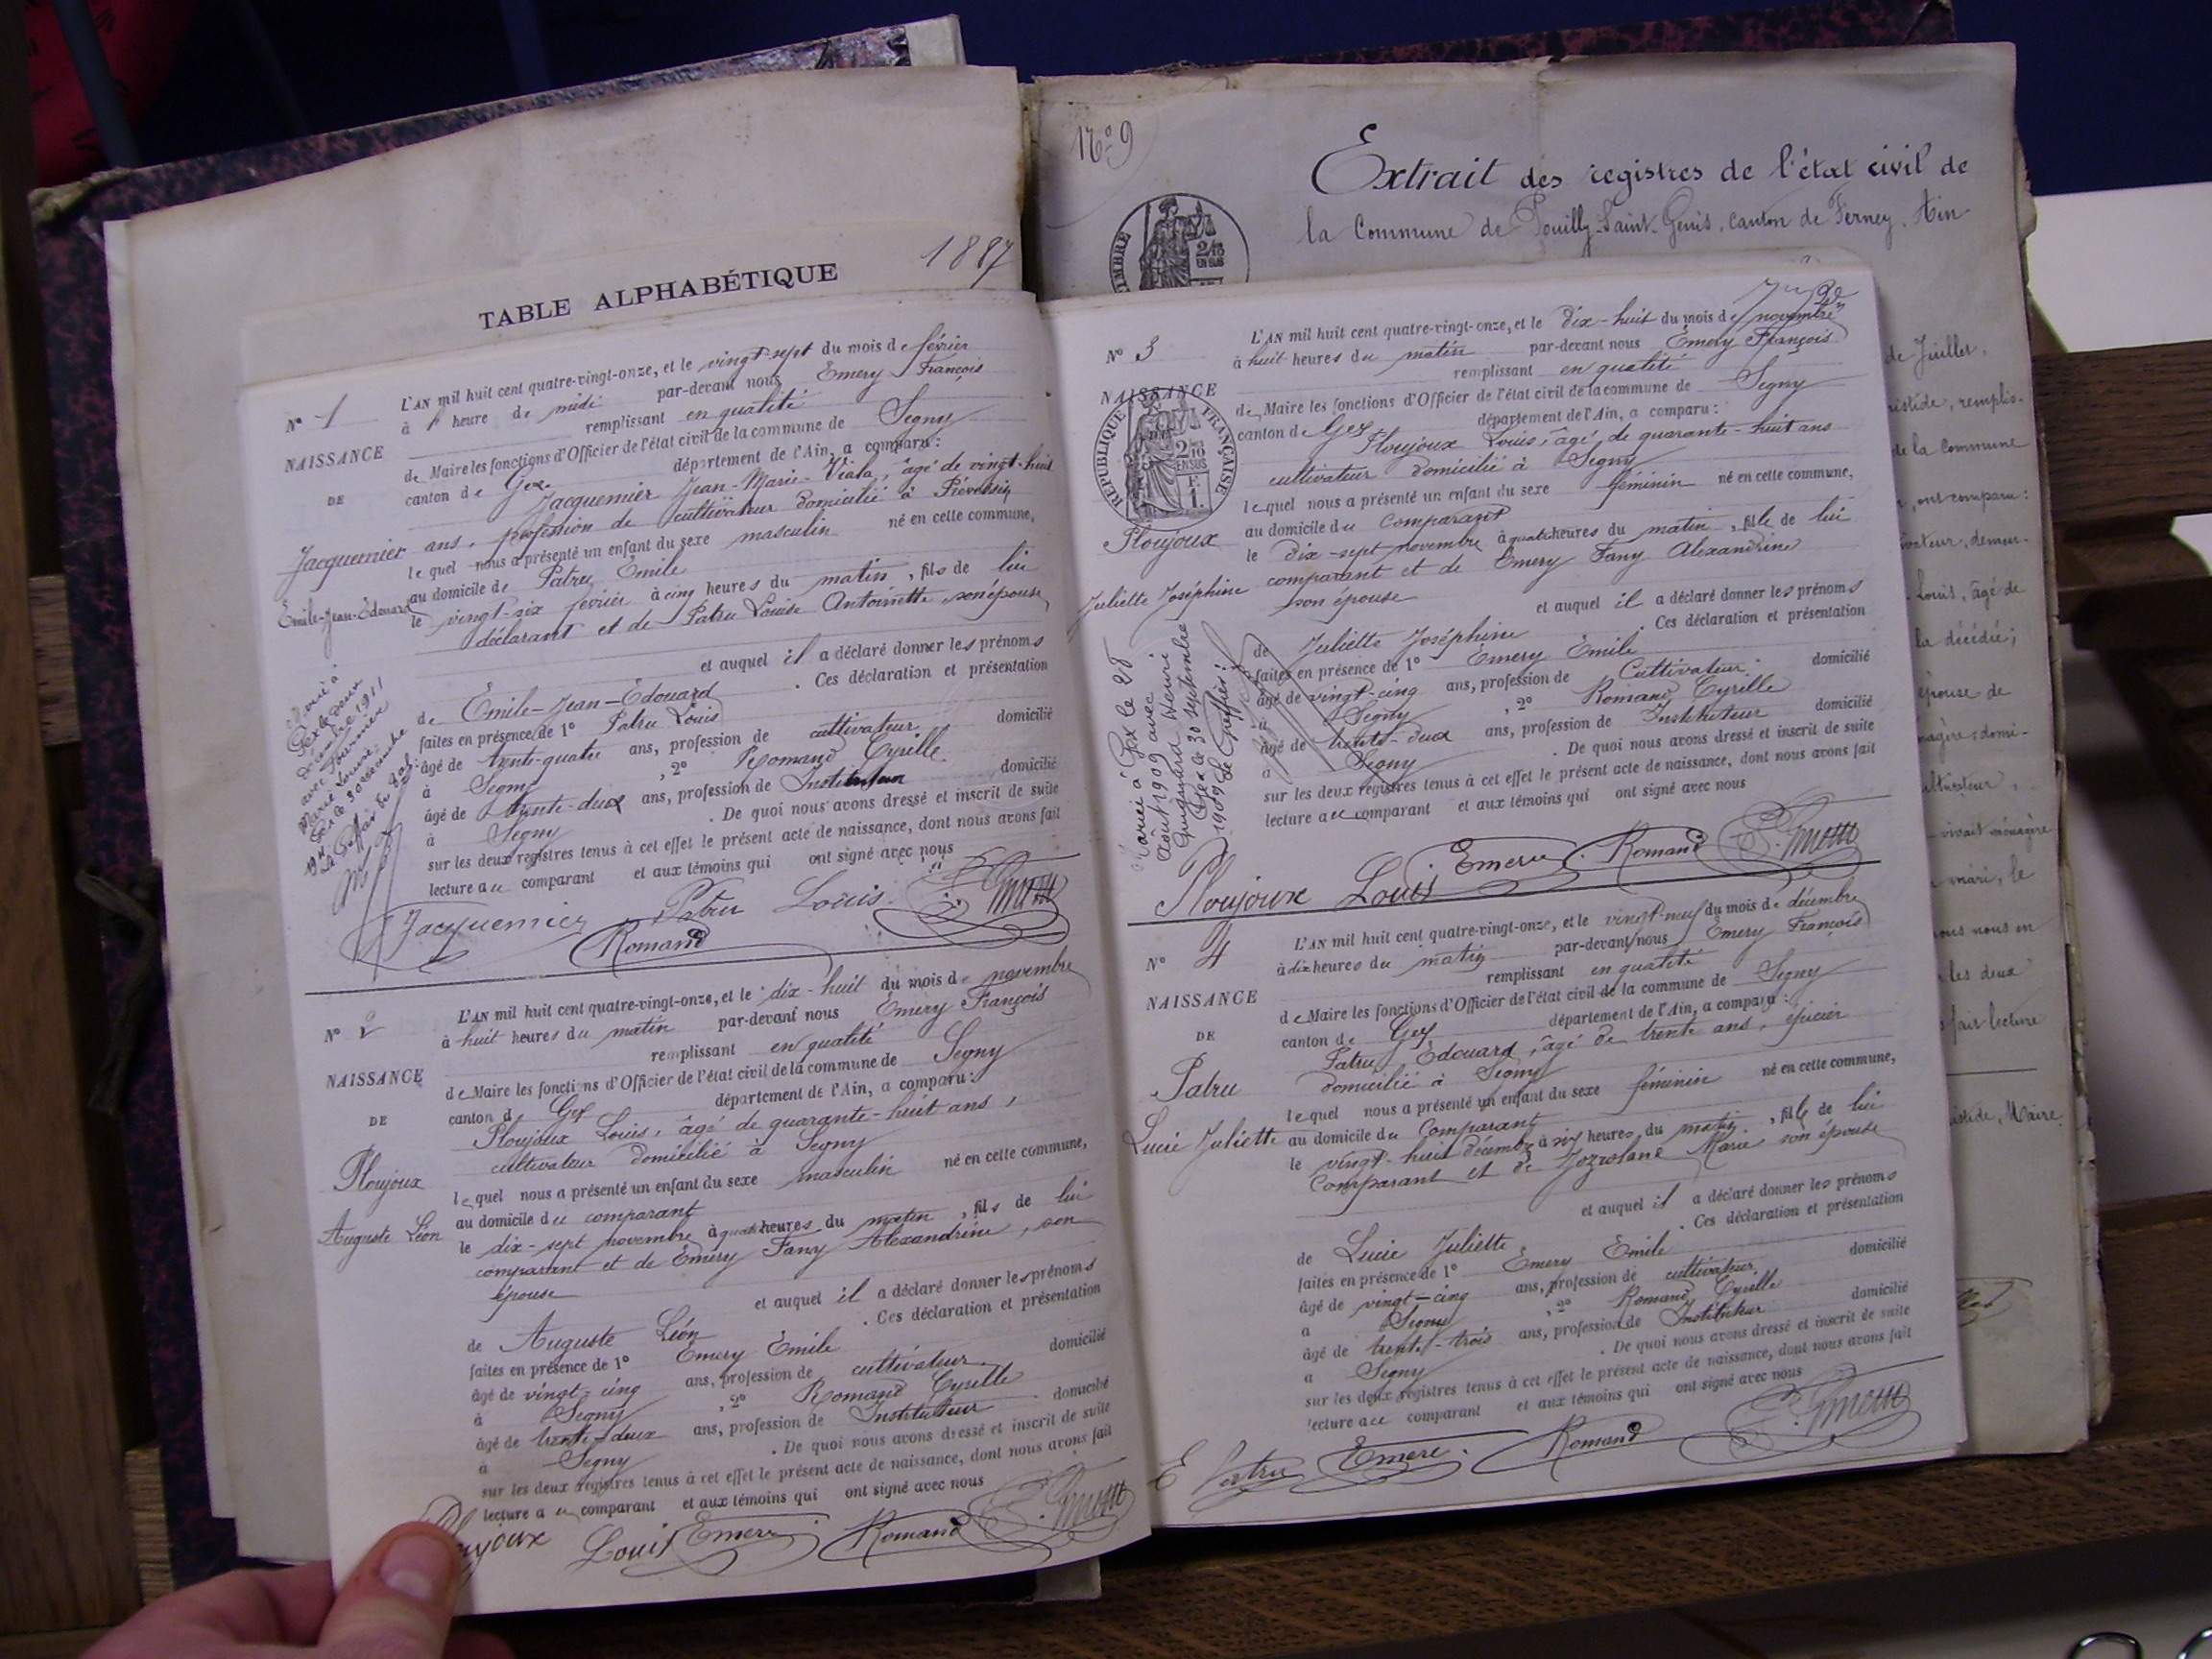 TABLE ALPHABÉTIQUE
1887
N° 1
NAISSANCE
DE
Jacquemier
Emile-Jean-Edouard
L'AN mil huit cent quatre-vingt-onze, et le vingt-sept du mois de février
à 1 heure de midi par-devant nous Emery François
remplissant en qualité
de Maire les fonctions d'Officier de l'état civil de la commune de Segny
canton de Gex département de l'Ain, a comparu:
Jacquemier Jean-Marie-Viala, âgé de vingt-huit
ans, profession de cultivateur domicilié à Prévessin
lequel nous a présenté un enfant du sexe masculin né en cette commune,
au domicile de Patru Emile
le vingt-six février à cinq heures du matin, fils de lui
déclarant et de Patru Louise Antoinette, son épouse,
et auquel il a déclaré donner les prénoms
de Émile-Jean-Édouard . Ces déclaration et présentation
faites en présence de 1° Patru Louis
âgé de trente-quatre ans, profession de cultivateur domicilié
à Segny , 2° Romand Cyrille
âgé de trente-deux ans, profession de Instituteur domicilié
à Segny . De quoi nous avons dressé et inscrit de suite
sur les deux registres tenus à cet effet le présent acte de naissance, dont nous avons fait
lecture au comparant et aux témoins qui ont signé avec nous
Marié à
Gex le deux
décembre 1911
avec Fournier
Marie Louise
Gex le 30 décembre
Jacquemier Patru Louis
Romand
N° 2
NAISSANCE
DE
Ploujoux
Auguste Léon
L'AN mil huit cent quatre-vingt-onze, et le dix-huit du mois de novembre
à huit heures du matin par-devant nous Emery François
remplissant en qualité
de Maire les fonctions d'Officier de l'état civil de la commune de Segny
canton de Gex département de l'Ain, a comparu:
Ploujoux Louis, âgé de quarante-huit ans,
cultivateur domicilié à Segny
lequel nous a présenté un enfant du sexe masculin né en cette commune,
au domicile du comparant
le dix-sept novembre à quatre heures du matin, fils de lui
comparant et de Emery Fany Alexandrine, son
épouse
et auquel il a déclaré donner les prénoms
de Auguste Léon . Ces déclaration et présentation
faites en présence de 1° Emery Emile
âgé de vingt-cinq ans, profession de cultivateur domicilié
à Segny , 2° Romand Cyrille
âgé de trente-deux ans, profession de Instituteur domicilié
à Segny . De quoi nous avons dressé et inscrit de suite
sur les deux registres tenus à cet effet le présent acte de naissance, dont nous avons fait
lecture au comparant et aux témoins qui ont signé avec nous
Ploujoux Louis Emery Romand
N° 9
Extrait des registres de l'état civil de
la Commune de Pouilly-Saint-Genis, canton de Ferney, Ain
TIMBRE
2/10
EN SUS
N° 3
NAISSANCE
RÉPUBLIQUE FRANÇAISE
2/10
EN SUS
Ploujoux
Juliette Joséphine
L'AN mil huit cent quatre-vingt-onze, et le dix-huit du mois de novembre
à huit heures du matin par-devant nous Emery François
remplissant en qualité
de Maire les fonctions d'Officier de l'état civil de la commune de Segny
canton de Gex département de l'Ain, a comparu:
Ploujoux Louis, âgé de quarante-huit ans
cultivateur domicilié à Segny
lequel nous a présenté un enfant du sexe féminin né en cette commune,
au domicile du comparant
le dix-sept novembre à quatre heures du matin, fille de lui
comparant et de Emery Fany Alexandrine
son épouse
et auquel il a déclaré donner les prénoms
de Juliette Joséphine . Ces déclaration et présentation
faites en présence de 1° Emery Emile
âgé de vingt-cinq ans, profession de Cultivateur domicilié
à Segny , 2° Romand Cyrille
âgé de trente-deux ans, profession de Instituteur domicilié
à Segny . De quoi nous avons dressé et inscrit de suite
sur les deux registres tenus à cet effet le présent acte de naissance, dont nous avons fait
lecture au comparant et aux témoins qui ont signé avec nous
Mariée à Gex le 28
août 1909 avec
Henri
Gex le 30 septembre
1909 Le Greffier:
Ploujoux Louis Emery Romand
N° 4
NAISSANCE
DE
Patru
Lucie Juliette
L'AN mil huit cent quatre-vingt-onze, et le vingt-neuf du mois de décembre
à dix heures du matin par-devant nous Emery François
remplissant en qualité
de Maire les fonctions d'Officier de l'état civil de la commune de Segny
canton de Gex département de l'Ain, a comparu:
Patru Edouard, âgé de trente ans, épicier
domicilié à Segny
lequel nous a présenté un enfant du sexe féminin né en cette commune,
au domicile du Comparant
le vingt-huit décembre à six heures du matin, fille de lui
Comparant et de Marie son épouse
et auquel il a déclaré donner les prénoms
de Lucie Juliette . Ces déclaration et présentation
faites en présence de 1° Emery Emile
âgé de vingt-cinq ans, profession de cultivateur domicilié
à Segny , 2° Romand Cyrille
âgé de trente-trois ans, profession de Instituteur domicilié
à Segny . De quoi nous avons dressé et inscrit de suite
sur les deux registres tenus à cet effet le présent acte de naissance, dont nous avons fait
lecture au comparant et aux témoins qui ont signé avec nous
E Patru Emery Romand
de Juillet,
Aristide, remplis-
de la Commune
, ont comparu:
demeu-
Louis, âgé de
la décédée;
épouse de
domi-
cultivateur,
vivait ménagère
mari, le
nous nous en
les deux
fait lecture
Aristide, Maire.